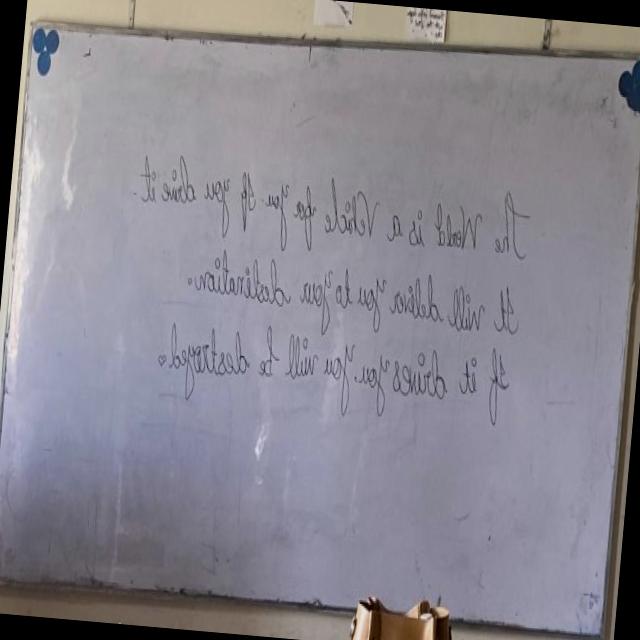 The World is a Vehicle for you. If you drive it.
It will deliver you to your destination.
If it drives you, you will be destroyed.